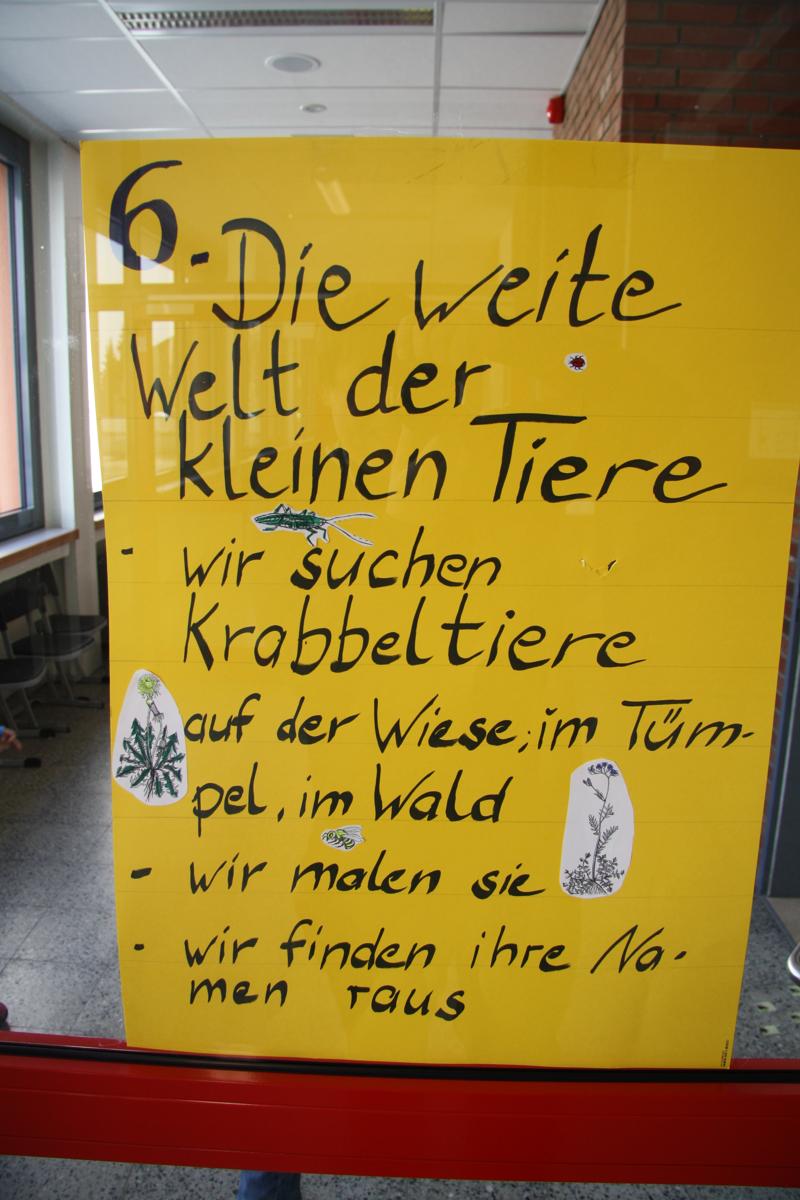 6. Die weite
Welt der
kleinen Tiere
- wir suchen
Krabbeltiere
auf der Wiese, im Tüm-
pel, im Wald
- wir malen sie
- wir finden ihre Na-
men raus